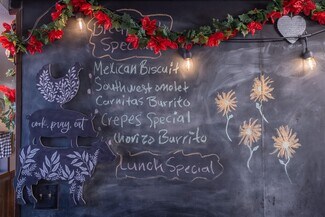 Breakfast
Specials
Mexican Biscuit
Southwest omolet
Carnitas Burrito
Crepes Special
Chorizo Burrito
Lunch Special
cook, pray, eat